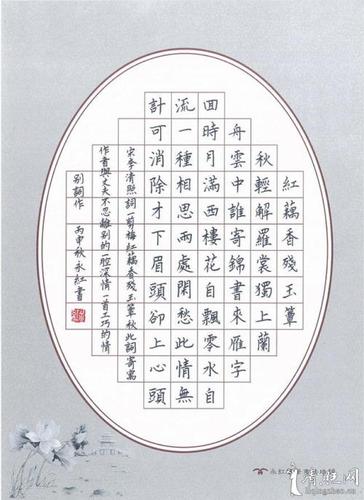 紅藕香殘玉簟
秋輕解羅裳獨上蘭
舟雲中誰寄錦書來雁字
回時月滿西樓花自飄零水自
流一種相思兩處閑愁此情無
計可消除才下眉頭卻上心頭
宋李清照詞一剪梅紅藕香殘玉簟秋此詞寄寓
作書與丈夫不忍離別的一腔深情一首工巧的情
別詞作 丙申秋永紅書